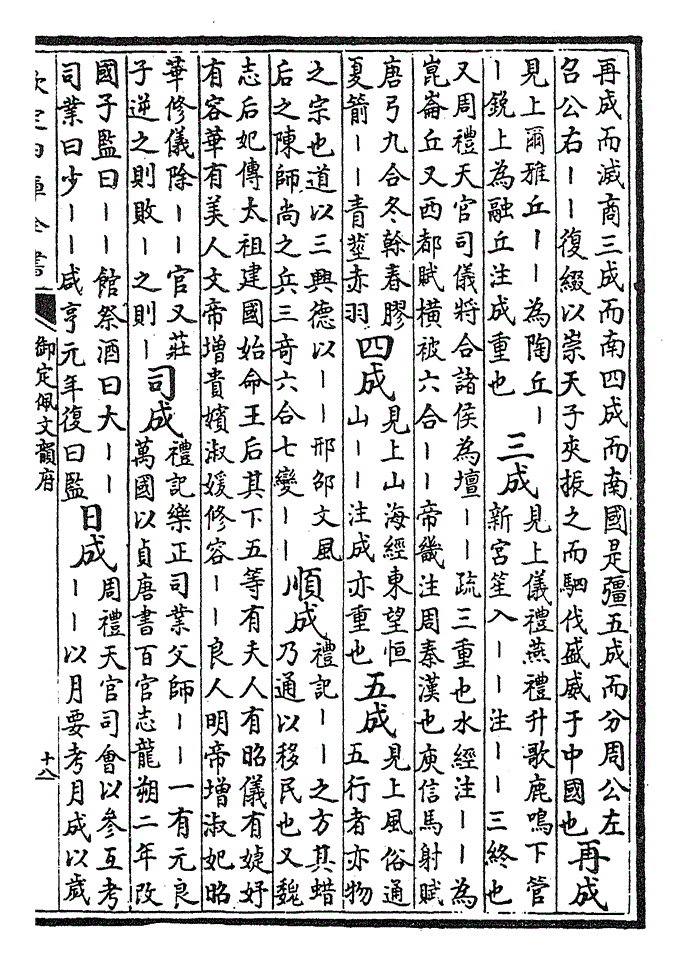 再成而滅商三成而南四成而南國是疆五成而分周公左
召公右｜｜復綴以崇天子夾振之而駟伐盛威于中國也
再成
見上爾雅丘｜｜為陶丘｜
｜銳上為融丘注成重也
三成
見上儀禮燕禮升歌鹿鳴下管
新宮笙入｜｜注｜｜三終也
又周禮天官司儀將合諸侯為壇｜｜疏三重也水經注｜｜為
崑崙丘又西都賦橫被六合｜｜帝畿注周秦漢也庾信馬射賦
唐弓九合冬幹春膠
夏箭｜｜青莖赤羽
四成
見上山海經東望恒
山｜｜注成亦重也
五成
見上風俗通
五行者亦物
之宗也道以三興德以｜｜邢邵文風
后之陳師尚之兵三奇六合七變｜｜
順成
禮記｜｜之方其蜡
乃通以移民也又魏
志后妃傳太祖建國始命王后其下五等有夫人有昭儀有婕妤
有容華有美人文帝增貴嬪淑媛修容｜｜良人明帝增淑妃昭
華修儀除｜｜官又莊
子逆之則敗｜之則｜
司成
禮記樂正司業父師｜｜一有元良
萬國以貞唐書百官志龍朔二年改
國子監曰｜｜館祭酒曰大｜｜
司業曰少｜｜咸亨元年復曰監
日成
周禮天官司會以參互考
｜｜以月要考月成以歲
欽定四庫全書
御定佩文韻府
十八